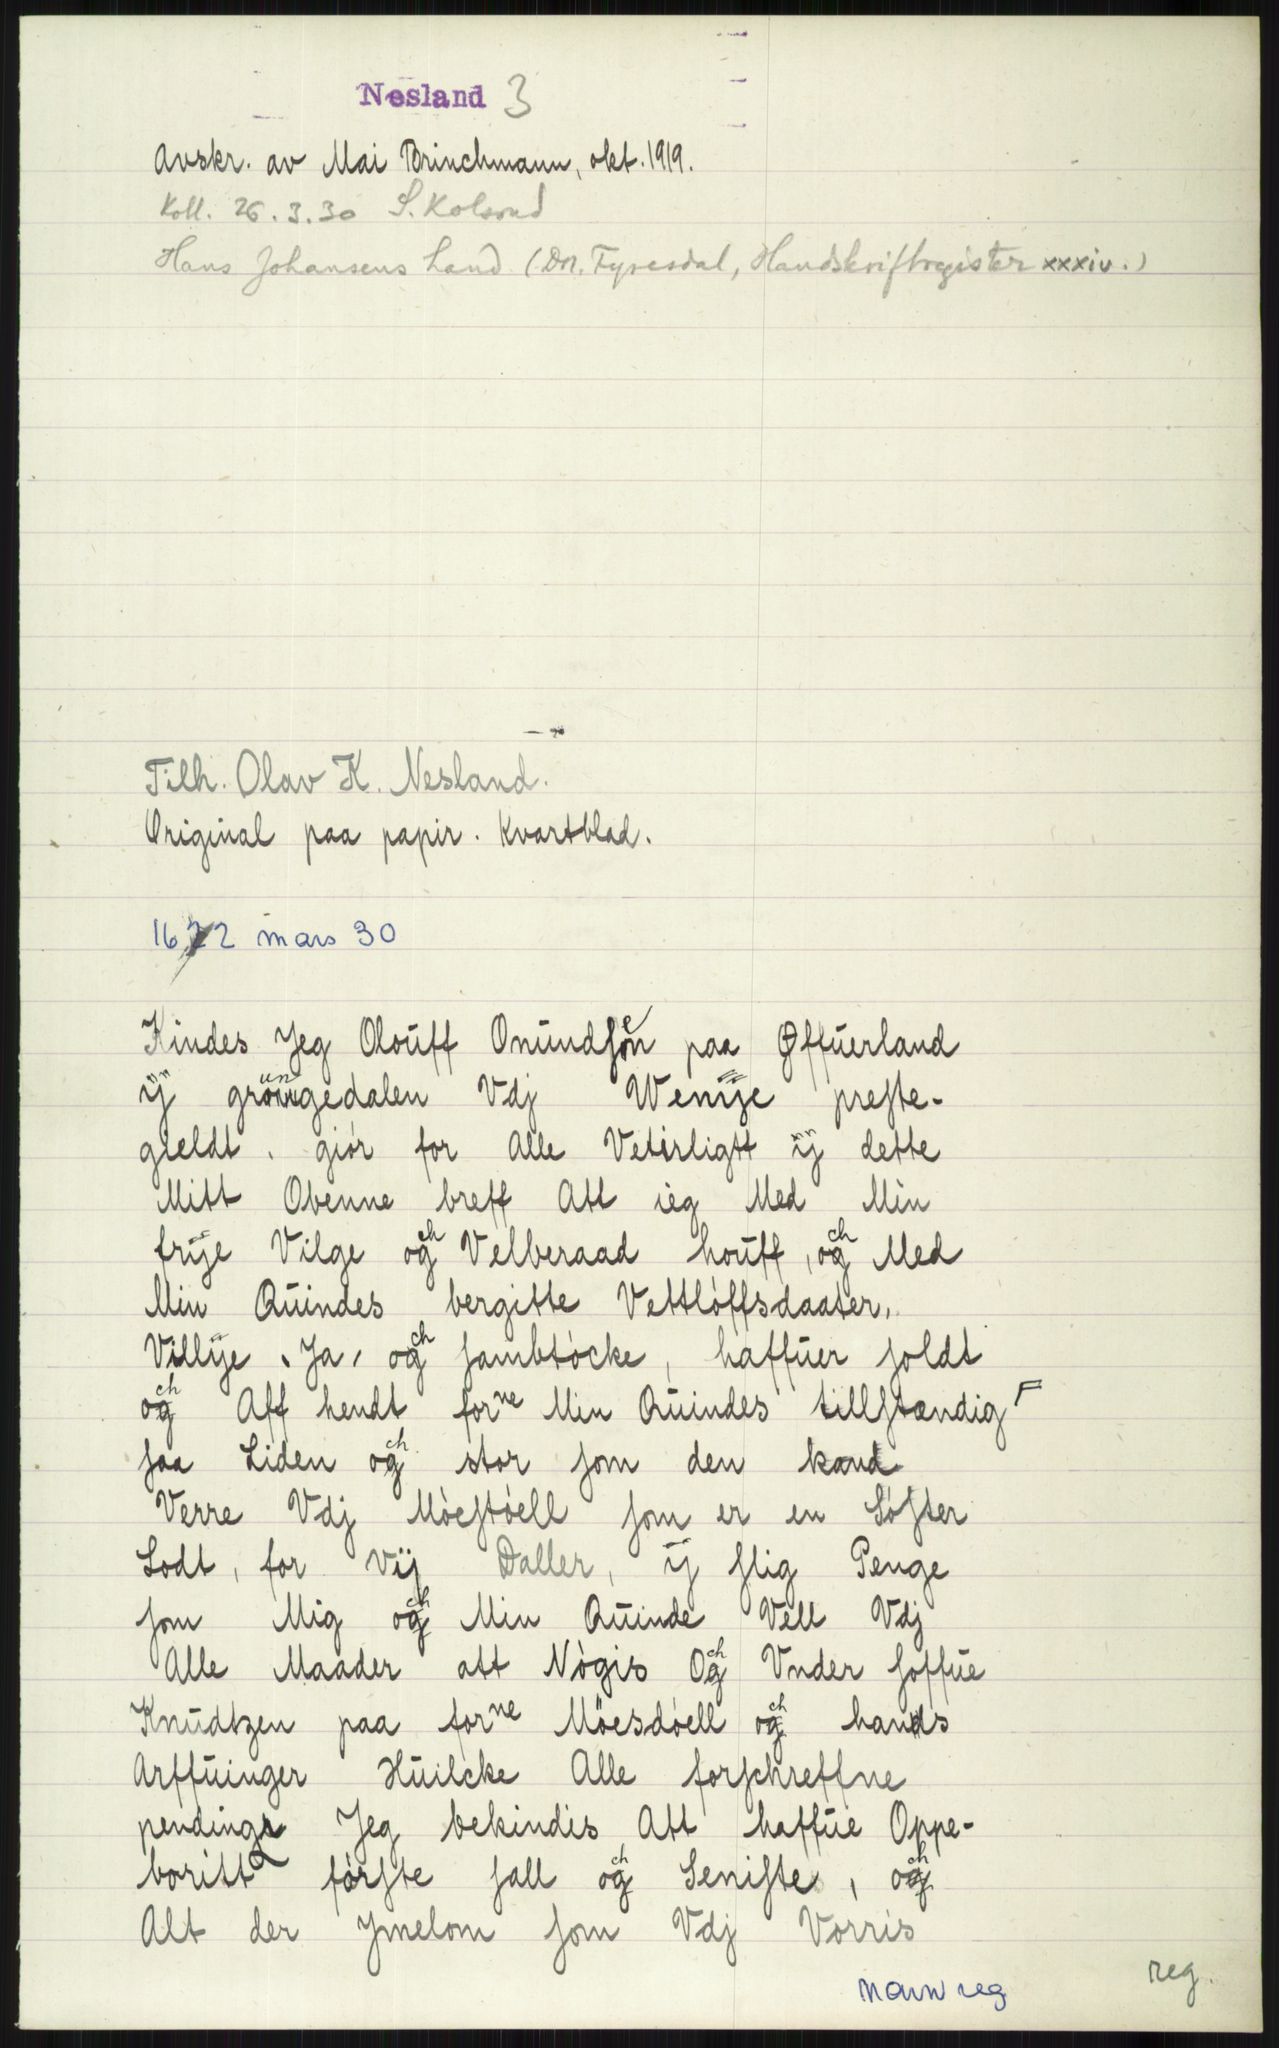 Nesland 3
Avskr. av Mai Brinchmann, okt. 1919.
Koll. 26.3.30 S. Kolsrud
Hans Johansens hand (Dn. Fyresdal, Handskriftregister xxxiv.)
Tilh. Olav K. Nesland.
Original paa papir. Kvartblad.
1622 mars 30
Kindes Jeg Olouff Onundsøn paa Øffuerland
ÿ grungedalen Vdj Wenÿe preste-
gieldt. giör for Alle Vetirligtt ÿ dette
Mitt Obenne breff Att ieg Med Min
frÿe Vilge och Velberaad houff, och Med
Min Quindes bergitte Vettlöffsdaater,
Villÿe, Ja, och sambtöcke, haffuer soldt
och Aff hendt forne Min Quindes tillstændig
saa Liden och stor som den kand
Verre Vdj Möestöell som er en Söster
Lodt, for vij Daller, ÿ slig Penge
som Mig och Min Quinde Vell Vdj
Alle Maader att Nögis Och Vnder soffue
Knudtzen paa forne Möesdöell och hands
Arffuinger Huilcke Alle forschreffne
pendinge Jeg bekindis Att haffue Oppe-
boritt förste sall och Seniste, och
Alt der ymelom som Vdj Vorris
navn reg
reg.